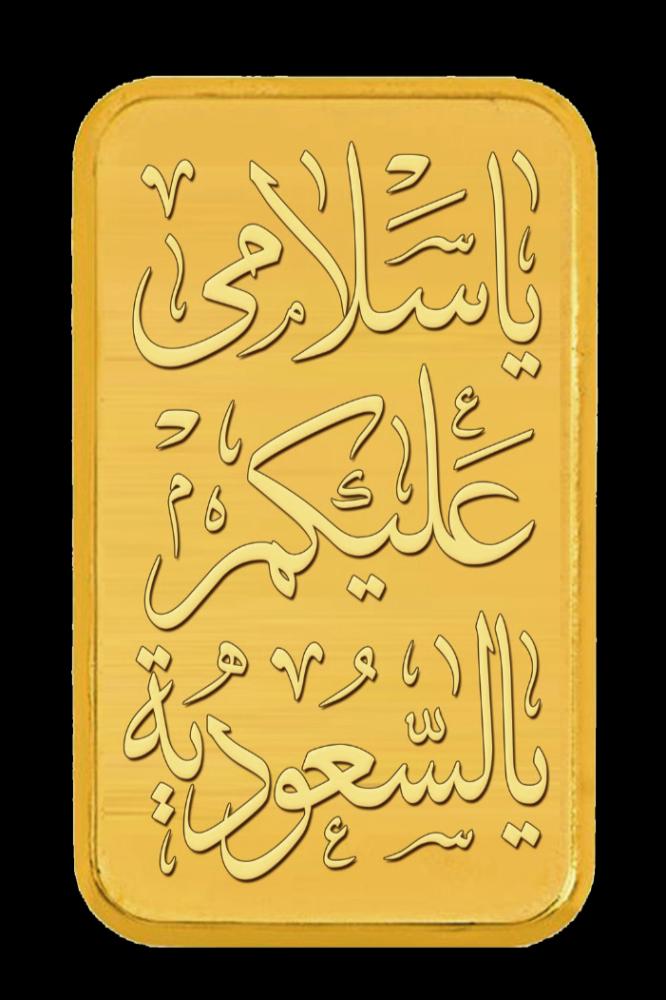 ياسلامي
عليكم
يالسّعودية